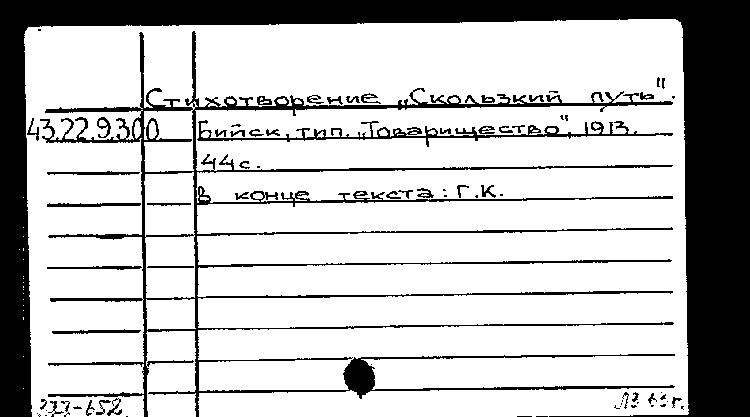 Стихотворение „Скользкий путь".
43.22.9.300 Бийск, тип. „Товарищество", 1913.
44 с.
В конце текста: Г.К.
ЛЗ 63 г.